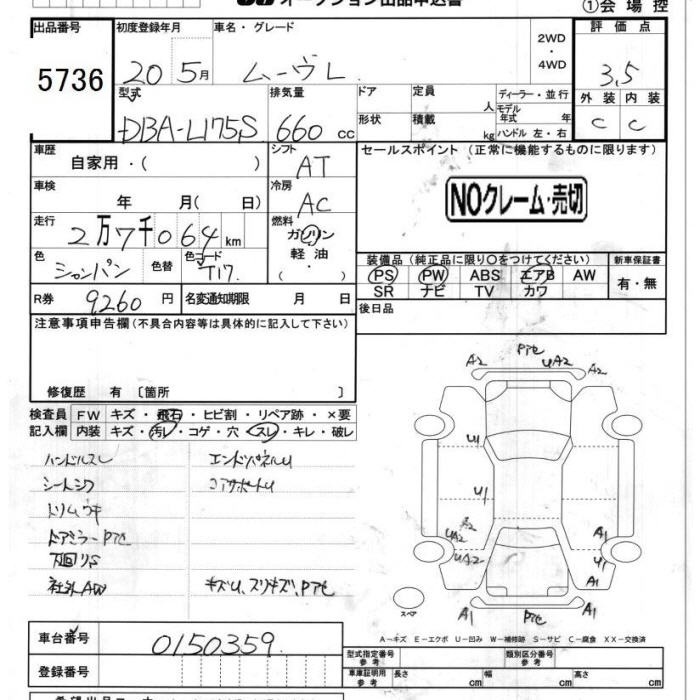 オークション出品申込書
①会場控
出品番号 初度登録年月 車名・グレード 2WD ・ 4WD 評価点
5736 20 5月 ムーヴL 3.5
型式 排気量 ドア 定員 人 ディーラー・並行 外装 内装
DBA-L175S 660 cc 形状 積載 kg モデル年式 年 ハンドル 左・右 C C
車歴 自家用・( ) シフト AT セールスポイント(正常に機能するものに限ります)
車検 年 月( 日) 冷房 AC NOクレーム・売切
走行 2万7千064km 燃料 ガソリン 軽油 ・
色 シャンパン 色替 色コード T17 装備品(純正品に限り○をつけてください) 新車保証書
PS PW ABS エアB AW 有・無
SR ナビ TV カワ
R券 9260円 名変通知期限 月 日 後日品
注意事項申告欄(不具合内容等は具体的に記入して下さい)
修復歴 有 〔箇所 〕
検査員 FW キズ・飛石・ヒビ割・リペア跡・×要
記入欄 内装 キズ・汚レ・コゲ・穴・スレ・キレ・破レ
ハンドルスレ エンドパネルU
シートシワ コアサポートU
トリムウキ
ドアミラーPアセ
下回りS
社外AW キズU、スリキズ、Pアセ
A2 Pアセ UA2 A2
U1
U1
A2
UA2 UA2 A1
U1
A1
スペア A1 Pアセ A1
A-キズ E-エクボ U-凹み W-補修跡 S-サビ C-腐食 XX-交換済
車台番号 0150359
登録番号
型式指定番号 参考 類別区分番号 参考
車庫証明用 参考 長さ cm 幅 cm 高さ cm